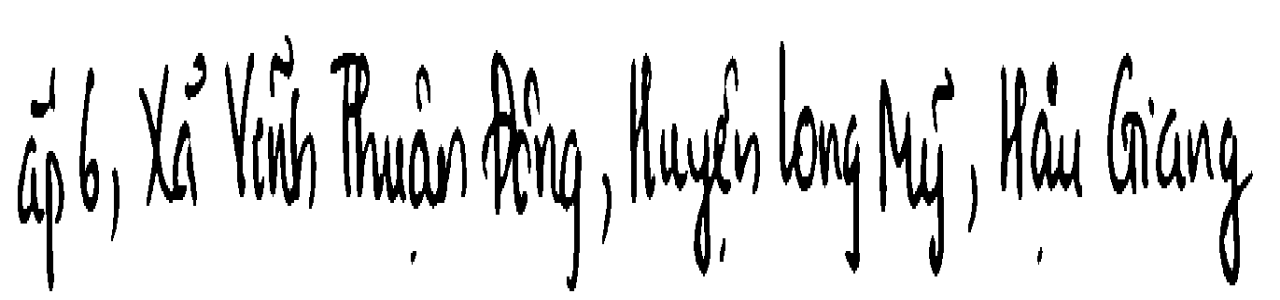 ấp 6, Xã Vĩnh Thuận Đông, Huyện Long Mỹ, Hậu Giang